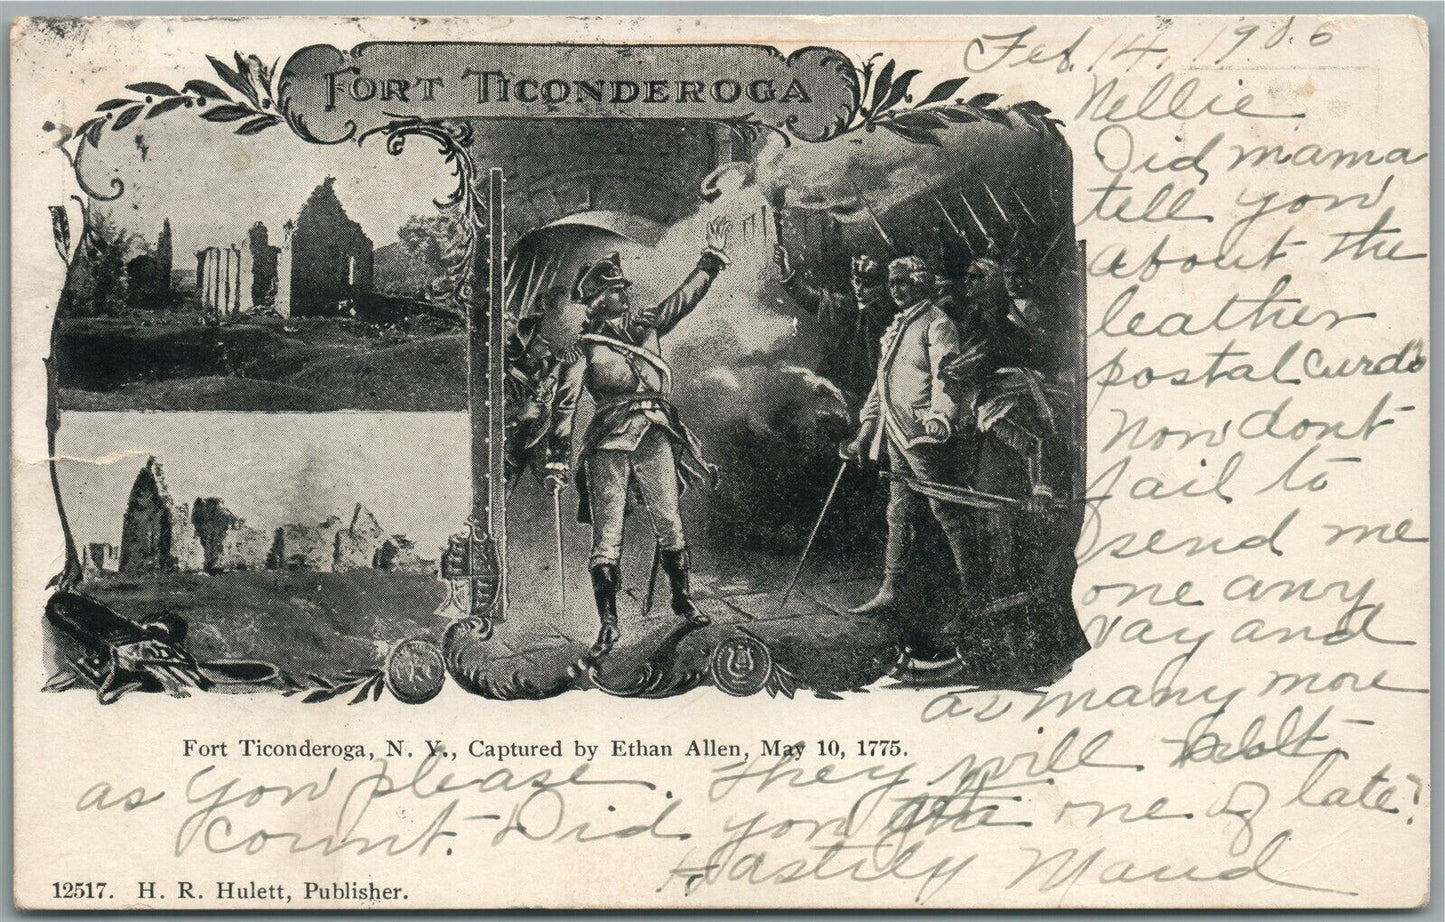 FORT TICONDEROGA
Feb. 14, 1906
Nellie
Did mama
tell you
about the
leather
postal cards
Now dont
fail to
send me
one any
way and
as many more
as you please. They will
count. Did you one of late?
Hastily Maud
Fort Ticonderoga, N. Y., Captured by Ethan Allen, May 10, 1775.
12517. H. R. Hulett, Publisher.